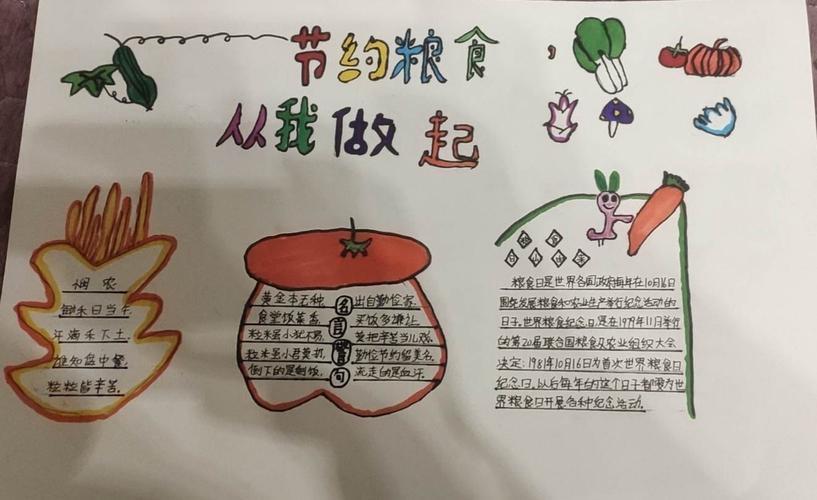 节约粮食，
从我做起
悯农
锄禾日当午
汗滴禾下土
谁知盘中餐
粒粒皆辛苦.
名言警句
黄金本五种 出自勤俭家.
食堂饭菜香, 买饭多谦让.
粒米虽小犹不易, 莫把辛苦当儿戏.
粒米虽小君莫扔, 勤俭节约留美名.
倒下的是剩饭, 流走的是血汗.
粮食
日小由来
粮食日是世界各国政府每年在10月16日
围绕发展粮食和农业生产举行纪念活动的
日子.世界粮食纪念日,是在1979年11月举行
的第20届联合国粮食及农业组织大会
决定:1981年10月16日为首次世界粮食日
纪念日.以后每年的这个日子都要为世
界粮食日开展各种纪念活动.